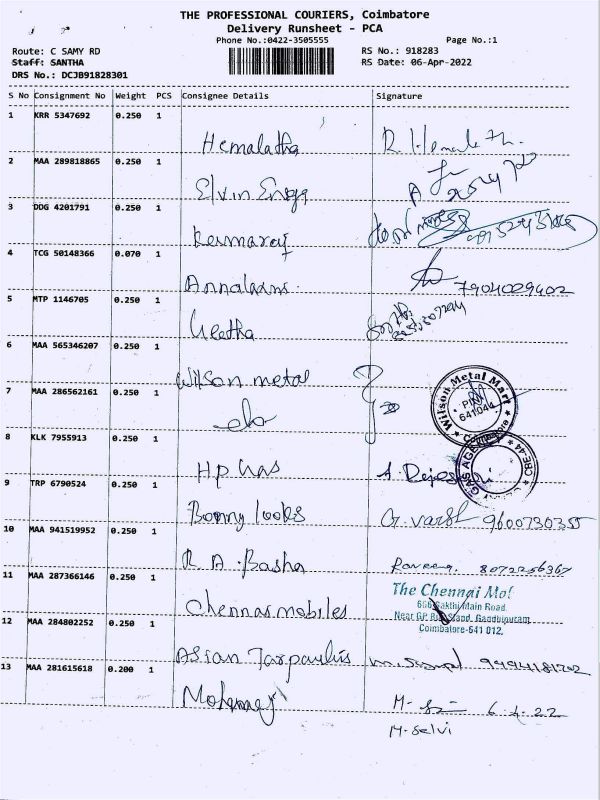 THE PROFESSIONAL COURIERS, Coimbatore
Delivery Runsheet - PCA
Phone No.:0422-3505555 Page No.:1
Route: C SAMY RD RS No.: 918283
Staff: SANTHA RS Date: 06-Apr-2022
DRS No.: DCJB91828301
S No Consignment No Weight PCS Consignee Details Signature
1 KRR 5347692 0.250 1
Hemalatha
2 MAA 289818865 0.250 1
Elvin Engg
3 DDG 4201791 0.250 1
4 TCG 50148366 0.070 1
7904029402
5 MTP 1146705 0.250 1
Geetha
6 MAA 565346207 0.250 1
Wilson metal
Wilson Metal Mart
PIN
641044
7 MAA 286562161 0.250 1
8 KLK 7955913 0.250 1
Hp Gas
GAS AGENCY CBE-44
9 TRP 6790524 0.250 1
Bonny looks G. varsh 9600730355
10 MAA 941519952 0.250 1
R. A. Basha 8072256367
11 MAA 287366146 0.250 1
Chennai mobiles
The Chennai Mob
Sakthi Main Road
Gandhipuram
Coimbatore-641 012.
12 MAA 284802252 0.250 1
Asian Tarpaulins
13 MAA 281615618 0.200 1
6.4.22
M. Selvi